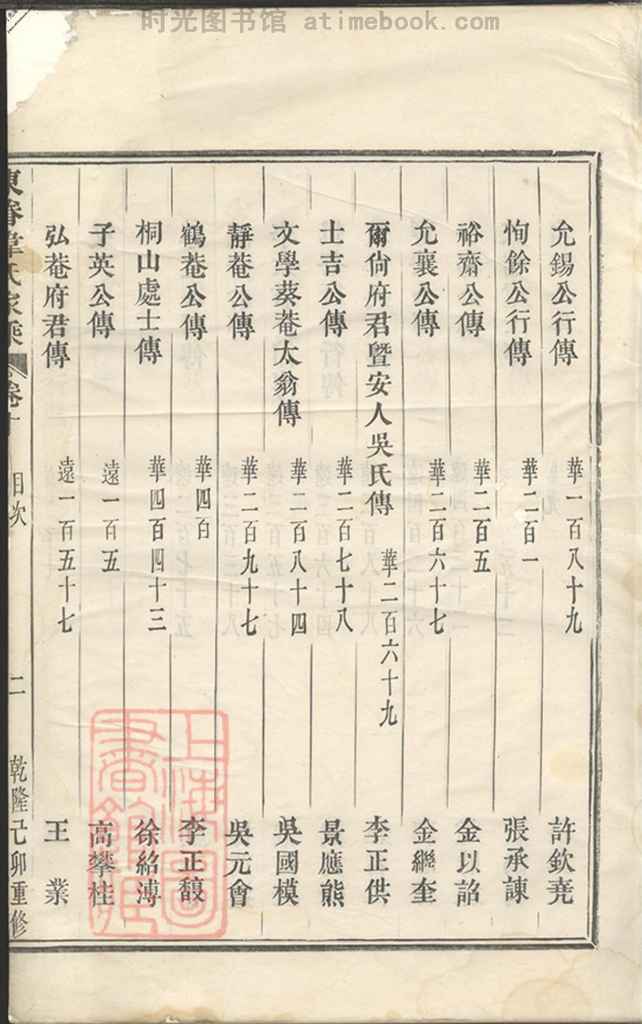 时光图书馆 atimebook.com
允錫公行傳 華一百八十九 許欽堯
恂餘公行傳 華二百一 張承諫
裕齋公傳 華二百五 金以諂
允襄公傳 華二百六十七 金繼奎
爾尙府君暨安人吳氏傳 華二百六十九 李正供
士吉公傳 華二百七十八 景應熊
文學葵菴太翁傳 華二百八十四 吳國模
靜菴公傳 華二百九十七 吳元會
鶴菴公傳 華四百 李正馥
桐山處士傳 華四百四十三 徐紹溥
子英公傳 遠一百五 高攀桂
弘菴府君傳 遠一百五十七 王業
氏家乘 卷十 目次 二 乾隆己卯重修
上海圖書館藏